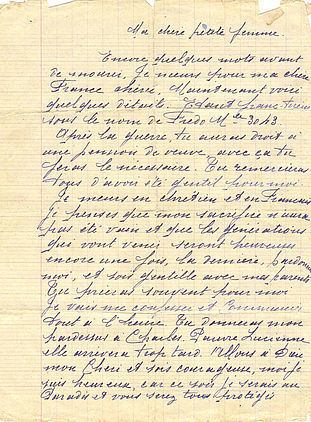 Ma chère petite femme.
Encore quelques mots avant
de mourir. Je meurs pour ma chère
France chérie. Maintenant voici
quelques détails. Étant franc tireur
sous le nom de Fredo Mle 3043.
Après la guerre tu auras droit à
une pension de veuve, avec ça tu
feras le nécessaire. Tu remercieras
tous d'avoir été gentil pour moi.
Je meurs en chrétien et en Français
je penses que mon sacrifice n'aura
pas été vain et que les générations
qui vont venir seront heureuses
encore une fois, la dernière, pardonne
moi, et sois gentille avec mes parents
Tu prieras souvent pour moi
Je vais me confesser et Communier
tout à l'heure. Tu donneras mon
pardessus à Charles. Pauvre Lucienne
elle arrivera trop tard. Allons à Dieu
mon Cheri et sois courageuse, moi je
suis heureux, car ce soir je serais au
Paradis et vous serez tous protégés